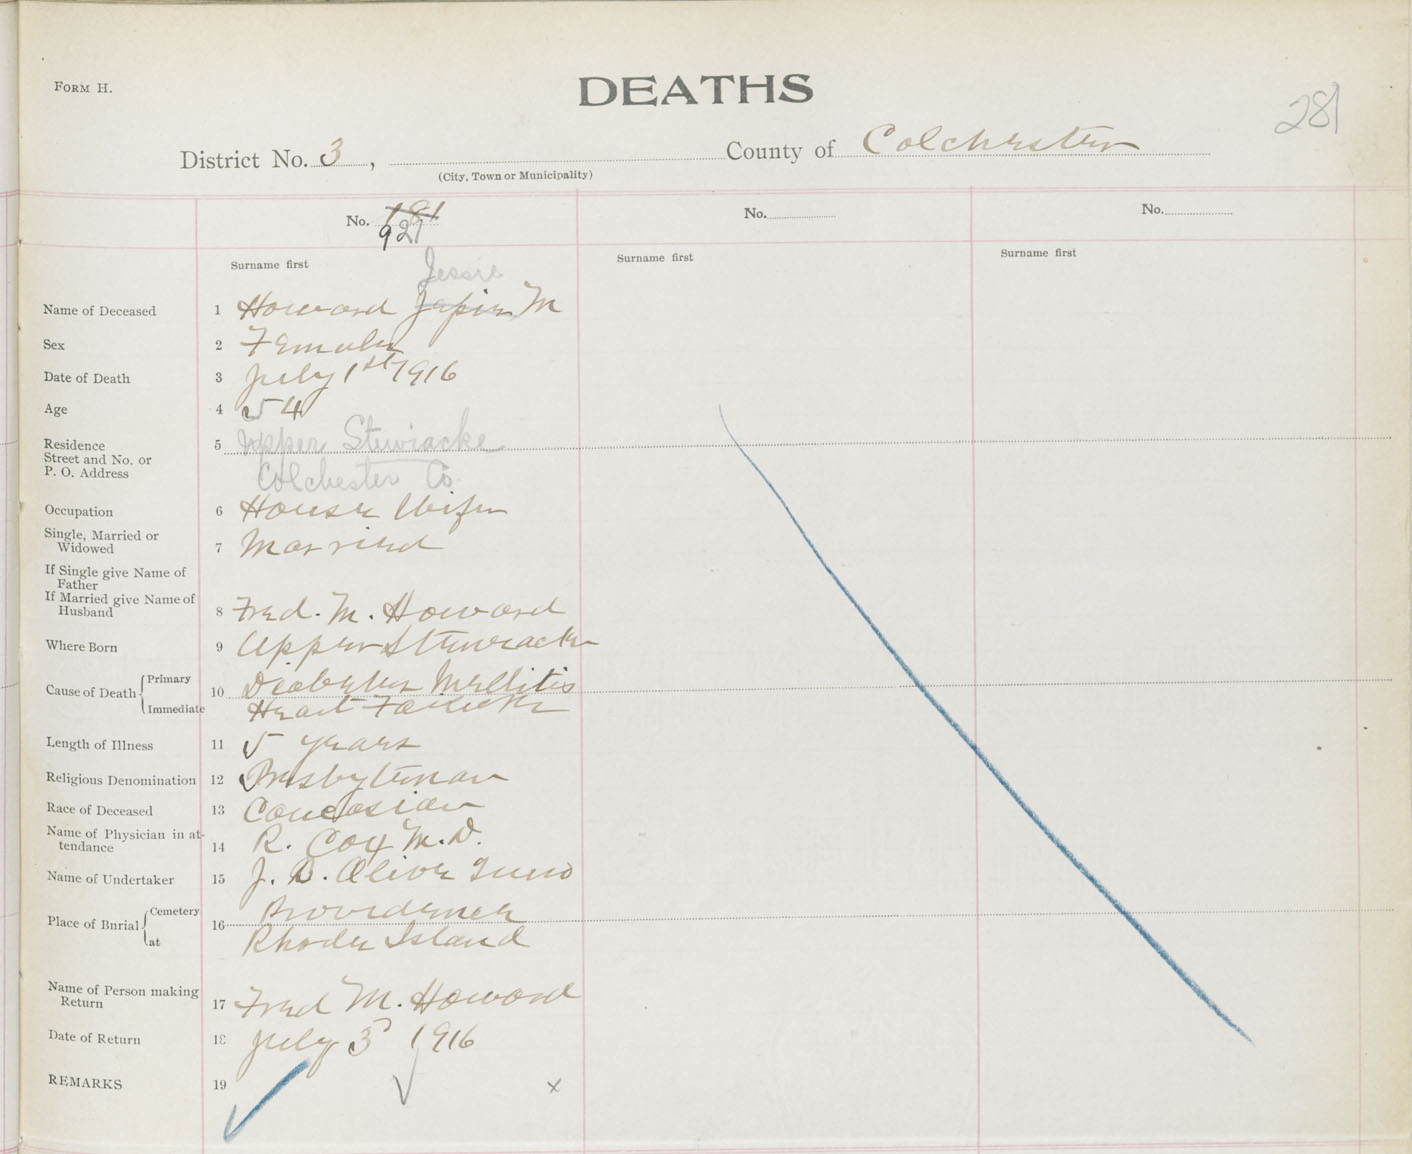 FORM H.
DEATHS
281
District No. 3, County of Colchester
(City, Town or Municipality)
No. 181
927
No.
No.
Surname first
Surname first
Surname first
Jessie
Name of Deceased 1 Howard M
Sex 2 Female
Date of Death 3 July 1st 1916
Age 4 54
Residence
Street and No. or
P. O. Address
5 Upper Stewiacke
Colchester Co
Occupation 6 House Wife
Single, Married or
Widowed
7 Married
If Single give Name of
Father
If Married give Name of
Husband
8 Fred. M. Howard
Where Born 9 Upper Stewiacke
Cause of Death Primary 10 Diabetes Mellitis
Immediate Heart Failure
Length of Illness 11 5 years
Religious Denomination 12 Presbyterian
Race of Deceased 13 Caucasian
Name of Physician in at-
tendance
14 R. Cox M.D.
Name of Undertaker 15 J. D. Olive Truro
Place of Burial Cemetery 16 Providence
at Rhode Island
Name of Person making
Return
17 Fred M. Howard
Date of Return 18 July 3 1916
REMARKS 19